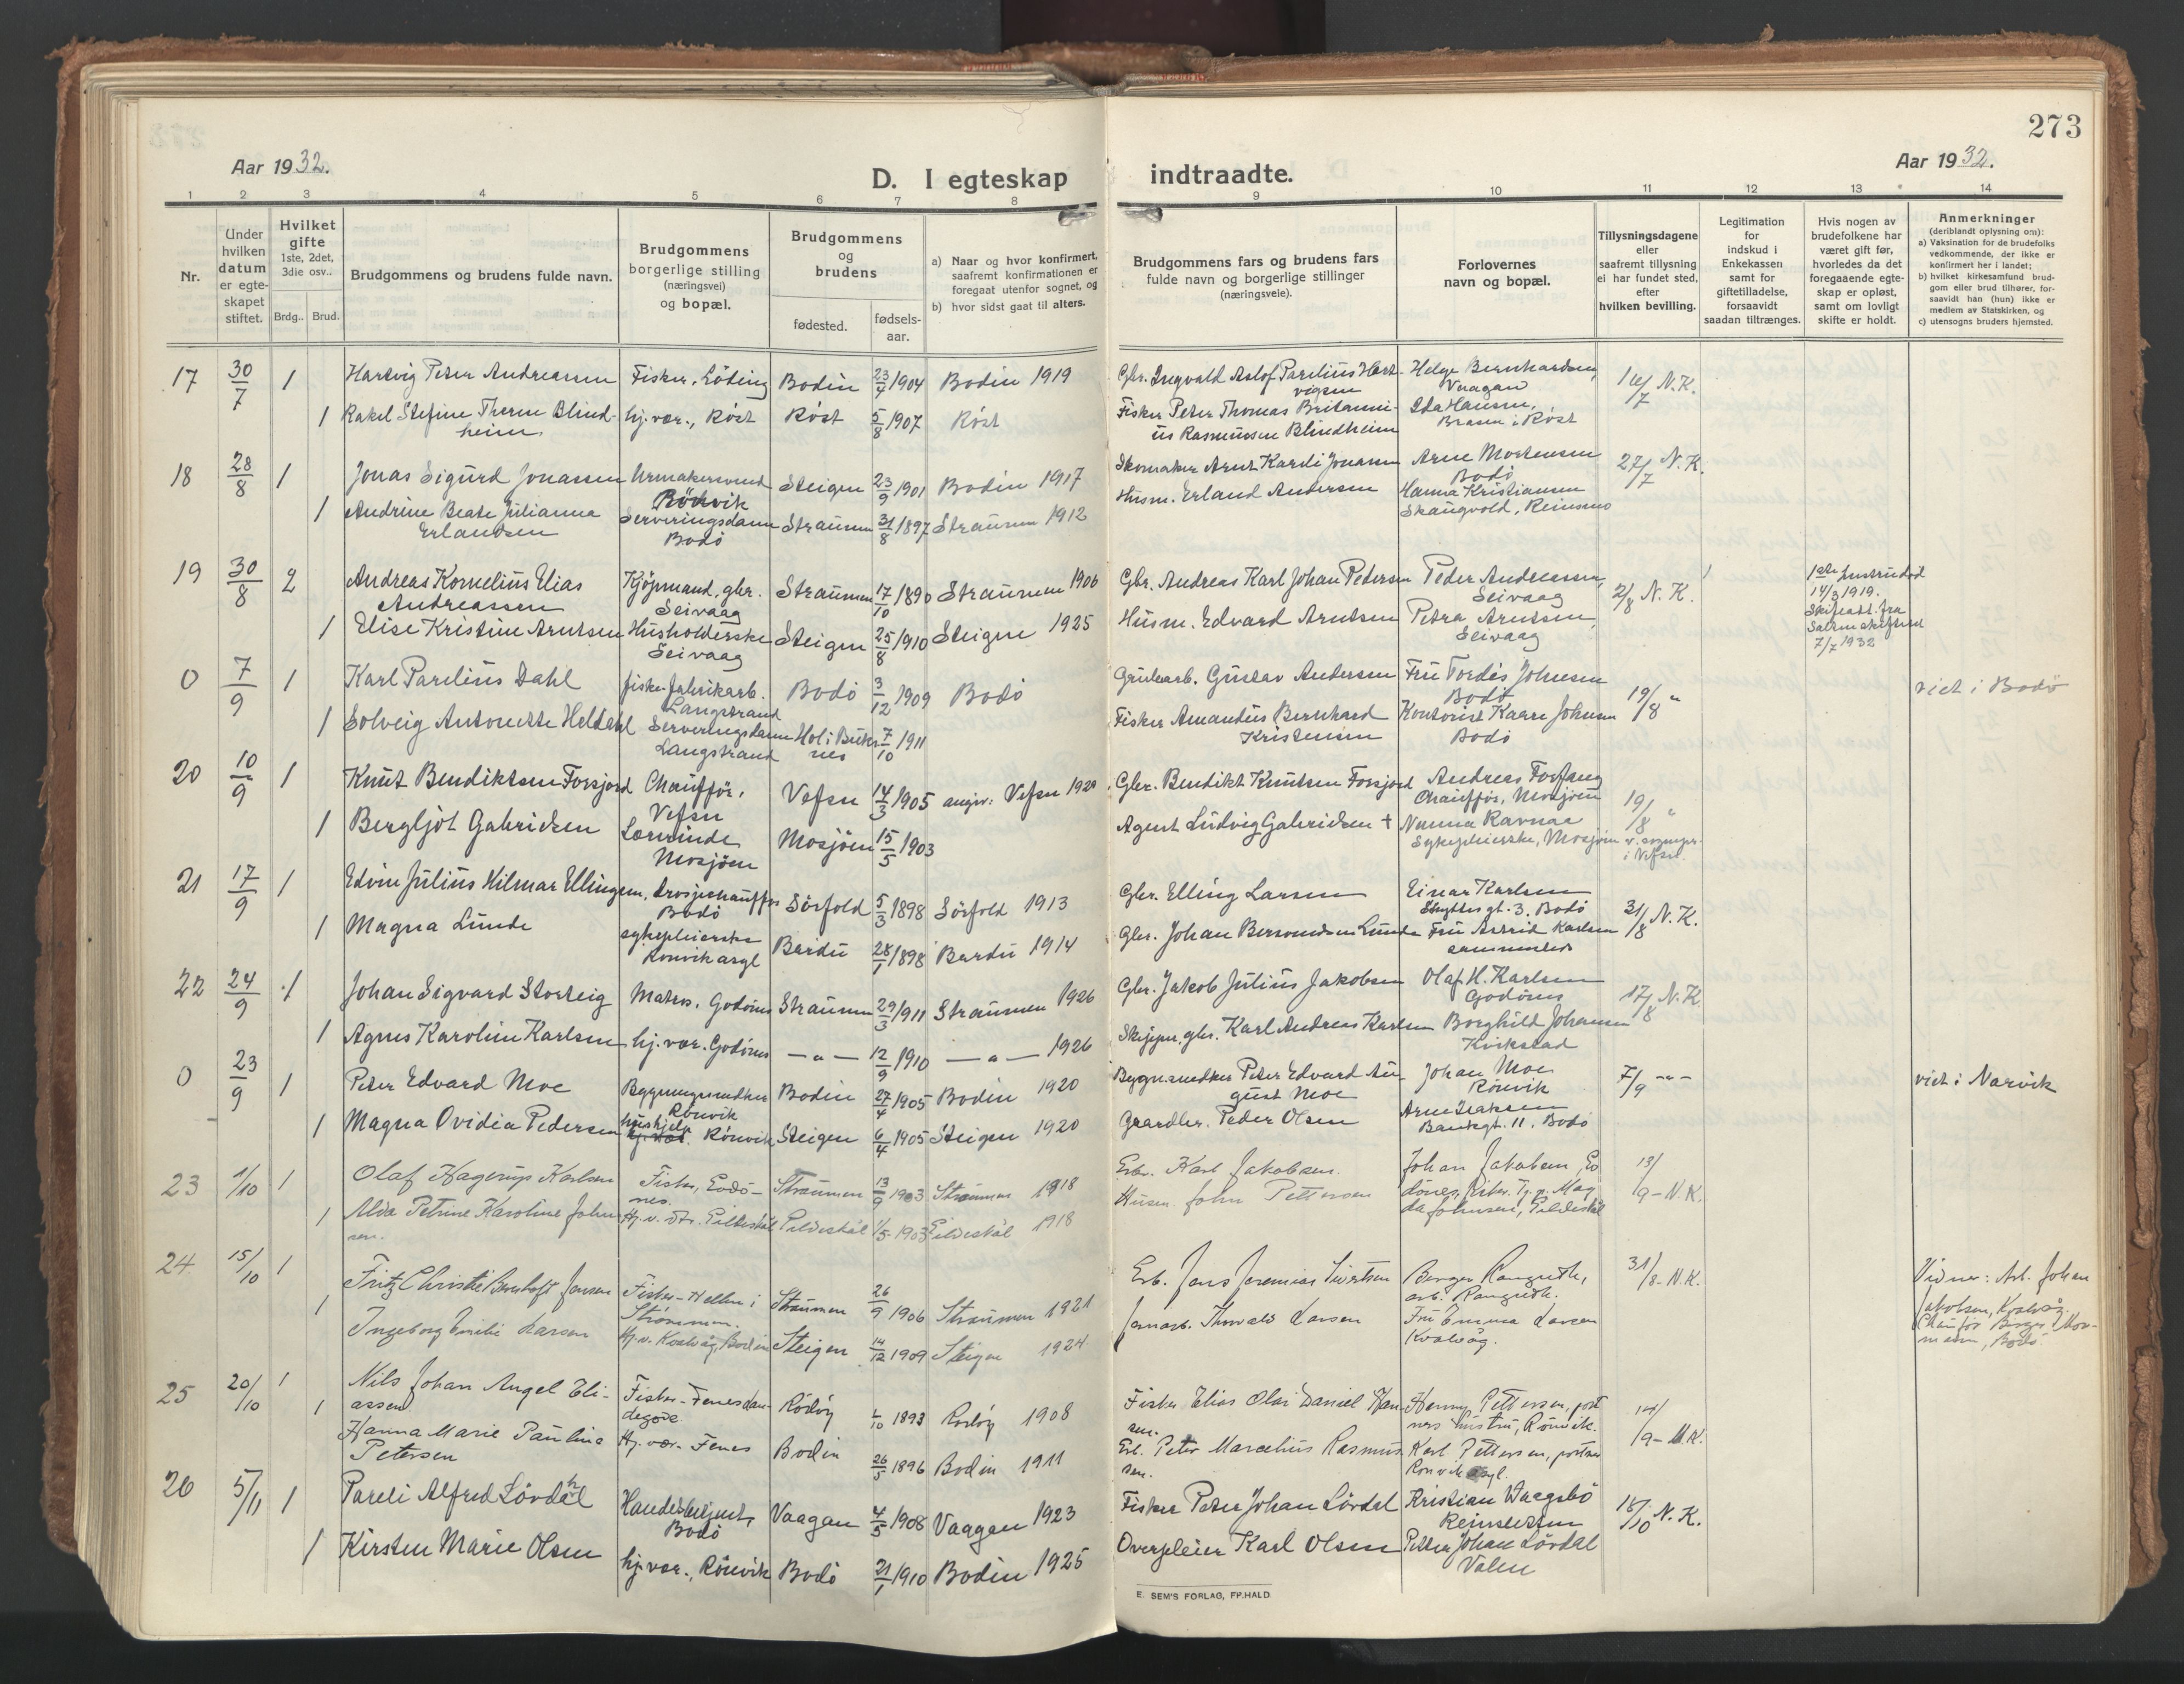 273
Aar 1932.
D. I egteskap
indtraadte.
Aar 1932.
1 2 3 4 5 6 7 8 9 10 11 12 13 14
Nr.
Under
hvilken
datum
er egte-
skapet
stiftet.
Hvilket
gifte
1ste, 2det,
3die osv..
Brdg.. Brud.
Brudgommens og brudens fulde navn.
Brudgommens
borgerlige stilling
(næringsvei)
og bopæl.
Brudgommens
og
brudens
fødested.
fødsels-
aar.
a) Naar og hvor konfirmert,
saafremt konfirmationen er
foregaat utenfor sognet, og
b) hvor sidst gaat til alters.
Brudgommens fars og brudens fars
fulde navn og borgerlige stillinger
(næringsveie).
Forlovernes
navn og bopæl.
Tillysningsdagene
eller
saafremt tillysning
ei har fundet sted,
efter
hvilken bevilling.
Legitimation
for
indskud i
Enkekassen
samt for
giftetilladelse,
forsaavidt
saadan tiltrænges.
Hvis nogen av
brudefolkene har
været gift før,
hvorledes da det
foregaaende egte-
skap er opløst,
samt om lovligt
skifte er holdt.
Anmerkninger
(deriblandt oplysning om):
a) Vaksination for de brudefolks
vedkommende, der ikke er
konfirmert her i landet;
b) hvilket kirkesamfund brud-
gom eller brud tilhører, for-
saavidt han (hun) ikke er
medlem av Statskirken, og
c) utensogns bruders hjemsted.
17 30/7 1 Hartvig Peter Andreassen Fisker, Löding Bodin 1904 Bodin 1919 Gbr. Ingvald Aslof Parelius Hart-vigsen Helge Bernhardsen, Vaagan 16/7 N.K.
1 Rakel Stefine Therese Blind-heim hj.vær., Röst Röst 5/8 1907 Röst Fisker Peter Thomas Britanni-us Rasmussen Blindheim Ida Hansen, i Röst
18 28/8 1 Jonas Sigurd Jonassen Urmakersvend Steigen 23/9 1901 Bodin 1917 Skomaker Arnt Kardi Jonassen Arne Mortensen Bodö 27/7 N.K.
1 Andrine Beate Julianna Erlandsen Serveringsdame Bodö Straumen 31/8 1897 Straumen 1912 Husm. Erland Andersen Hanna Kristiansen Skaugvold,
19 30/8 2 Andreas Kornelius Elias Andreassen Kjöpmand, gbr. Seivaag Straumen 17/10 1890 Straumen 1906 Gbr. Andreas Karl Johan Petersen Peder Andreassen, Seivaag 2/8 N.K. 1ste hustru död 14/3 1919. Skifteatt. fra Salten skifteret 7/7 1932
1 Elise Kristine Arntsen Husholderske Seivaag Steigen 25/8 1910 Steigen 1925 Husm. Edvard Arntsen Petra Arntsen, Seivaag
0 7/9 1 Karl Parelius Dahl fisker, fabrikarb. Langstrand Bodö 3/12 1909 Bodö Grubearb. Gustav Andersen Fru Tordis Johnsen Bodö 19/8 " viet i Bodö
1 Solveig Antonette Heldahl Serveringsdame Langstrand Hol i Buks-nes 7/10 1911 Fisker Amandus Bernhard Kristensen Kontorist Kaare Johnsen Bodö
20 10/9 1 Knut Bendiktsen Forsjord Chaufför, Vefsn Vefsn 14/3 1905 angiv: Vefsn 1920 Gbr. Bendikt Knutsen Forsjord Andreas Forfang Chauffør, Mosjöen 19/8 "
1 Bergljot Gabrielsen Lærerinde Mosjöen Mosjöen 15/5 1903 Agent Ludvig Gabrielsen † Nanna Ravnaa Sykepleierske, Mosjöen v. sogneprs. i Vefsn.
21 17/9 1 Edvin Julius Hilmar Ellingsen, drosjechauffør Bodö Sörfold 5/3 1898 Sörfold 1913 Gbr. Elling Larsen Einar Karlsen Skyttergt. 3. Bodö 31/8 N.K.
1 Magna Lunde sykepleierske Rönvik asyl Bardu 28/1 1898 Bardu 1914 Gbr. Johan Bersvendsen Lunde Fru Astrid Karlsen sammesteds
22 24/9 1 Johan Sigvard Storteig Matros, Godönes Straumen 29/3 1911 Straumen 1926 Gbr. Jakob Julius Jakobsen Olaf H. Karlsen Godönes 17/8 N.K.
1 Agnes Karoline Karlsen hj.vær. Godönes — " — 12/9 1910 — " — 1926 Skipper, gbr. Karl Andreas Karlsen Borghild Johansen Kvikstad
0 23/9 1 Peter Edvard Moe Bygningssnedker Rönvik Bodin 27/4 1905 Bodin 1920 Bygn.snedker Peter Edvard Au-gust Moe Johan Moe Rönvik 7/9 - " - viet i Narvik
1 Magna Ovidia Pedersen hushjelp Rönvik Steigen 6/4 1905 Steigen 1920 Gaardbr. Peder Olsen Arne Isaksen Bankgt. 11. Bodö
23 1/10 1 Olaf Hagerup Karlsen Fisker, Godö-nes. Straumen 13/9 1903 Straumen 1918 Erbr. Karl Jakobsen. Johan Jakobsen, Go-dönes, 13/9 - N.K.
1 Alda Petrine Karoline John-sen. Hj.v. dtr. Gildeskål Gildeskål 1/5 1903 Gildeskål 1918 Husm. John Pettersen Mag-da Johnsen, Gildeskål
24 15/10 1 Fritz Christie Bernhoft Jensen Fisker - Hellen i Strömmen. Straumen 26/9 1906 Straumen 1921 Erb. Jens Jeremias Sivertsen Berger arb. 31/8 - N.K. Vidner: Arb. Johan Jakobsen, Kvalvåg. Chauför Berger Mon-
1 Ingeborg Emilie Larsen Hj.v. Kvalvåg, Bodin Steigen 14/12 1909 Steigen 1924 Jernarb. Thorvald Larsen Fru Emma Larsen Kvalvåg. Bodö
25 20/10 1 Nils Johan Angel Eli-assen Fisker - Fenes Lan-degode Rödöy 1/10 1893 Rödöy 1908 Fisker Elias Olai Daniel Han-sen. Henny Pettersen, port-ners hustru, Rönvik. 14/9 - N.K.
1 Hanna Marie Paulina Petersen Hj. vær. Fenes Bodin 26/5 1896 Bodin 1911 Erb. Peter Marcelius Rasmus-sen. Karl Pettersen, portner Rönvik asyl.
26 5/11 1 Pareli Alfred Lövdal Handelsbetjent, Bodö Vaagan 4/5 1908 Vaagan 1923 Fisker Peter Johan Lövdal Kristian Waagsbö Reinsletten 18/10 N.K.
1 Kirsten Marie Olsen hj.vær., Rönvik Bodö 21/1 1910 Bodin 1925 Overpleier Karl Olsen Petter Johan Lövdal Valen
E. SEM'S FORLAG, FR.HALD